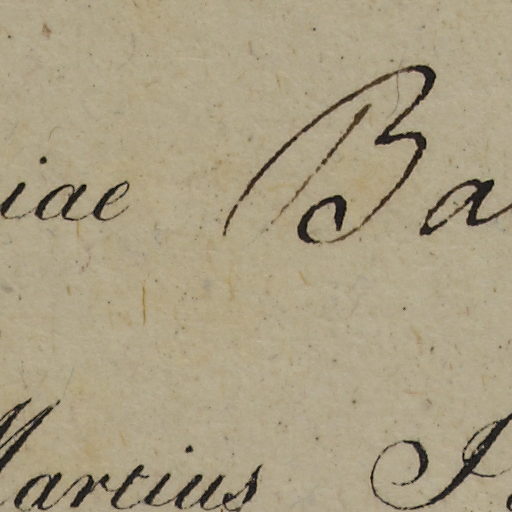 iae Ba
Martius